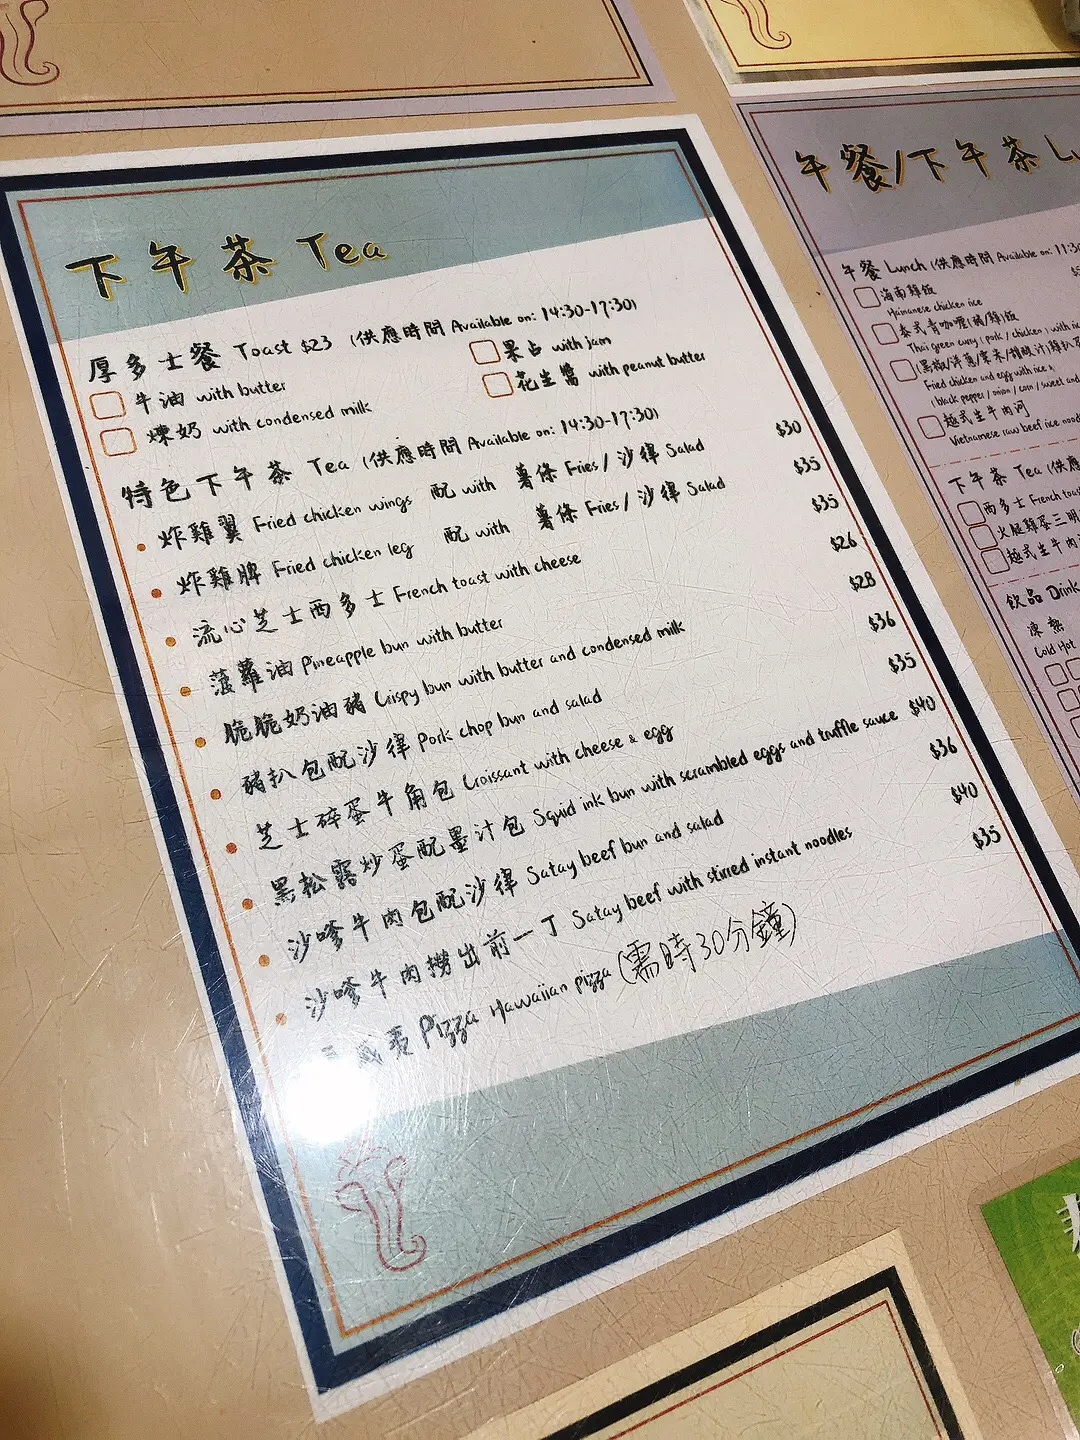 下午茶 Tea
厚多士餐 Toast $23 (供應時間 Available on: 14:30-17:30)
牛油 with butter
果占 with jam
煉奶 with condensed milk
花生醬 with peanut butter
特色下午茶 Tea (供應時間 Available on: 14:30-17:30)
炸雞翼 Fried chicken wings 配 with 薯條 Fries / 沙律 Salad $30
炸雞脾 Fried chicken leg 配 with 薯條 Fries / 沙律 Salad $35
流心芝士西多士 French toast with cheese $35
菠蘿油 Pineapple bun with butter $26
脆脆奶油豬 Crispy bun with butter and condensed milk $28
豬扒包配沙律 Pork chop bun and salad $36
芝士碎蛋牛角包 Croissant with cheese & egg $35
黑松露炒蛋配墨汁包 Squid ink bun with scrambled eggs and truffle sauce $40
沙嗲牛肉包配沙律 Satay beef bun and salad $36
沙嗲牛肉撈出前一丁 Satay beef with stirred instant noodles $40
威夷 Pizza Hawaiian pizza (需時30分鐘) $35
午餐/下午茶
午餐 Lunch (供應時間 Available on: 11:30
海南雞飯
Hainanese chicken rice
泰式青咖喱(豬/雞)飯
Thai green curry (pork / chicken) with
Fried chicken and egg with rice
(black pepper / onion / corn / sweet and
越式生牛肉河
Vietnamese raw beef rice
下午茶 Tea (供應
西多士 French
火腿雞蛋三
越式生牛肉
飲品 Drink
凍 熱
Cold Hot